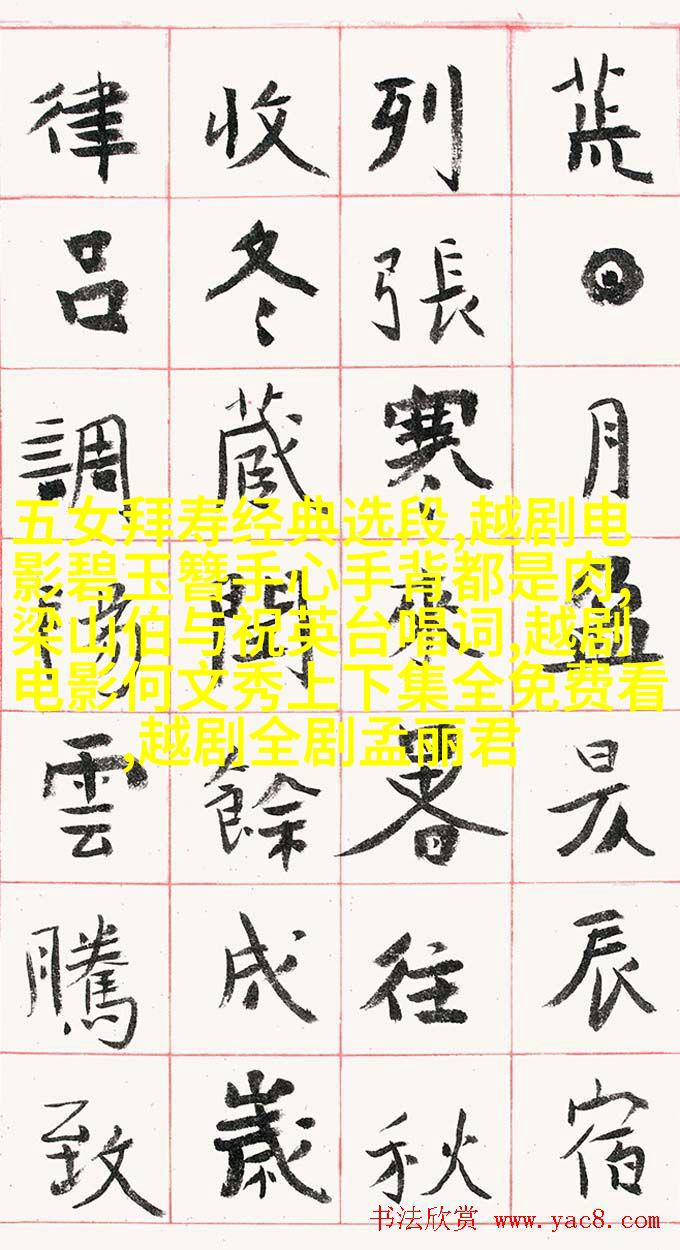 荒日月盈昃辰宿
列張寒來暑往秋
收冬藏閏餘成歲
律呂調陽雲騰致
五女拜寿经典选段,越剧电
影碧玉簪手心手背都是肉,
梁山伯与祝英台唱词,越剧
电影何文秀上下集全免费看
,越剧全剧孟丽君
书法欣赏 www.yac8.com